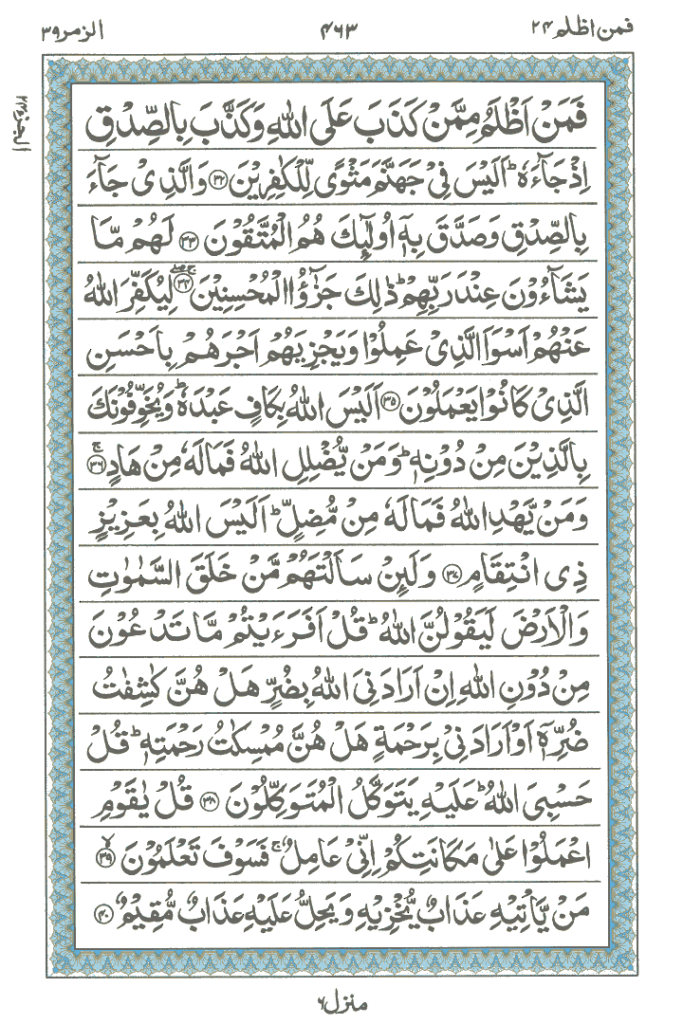 فمن اظلم ۲۴ ۴۶۳ الزمر ۳۹
الجزء ۲۴
فَمَنْ اَظْلَمُ مِمَّنْ كَذَبَ عَلَى اللّٰهِ وَكَذَّبَ بِالصِّدْقِ
اِذْ جَآءَهٗ ؕ اَلَيْسَ فِيْ جَهَنَّمَ مَثْوًى لِّلْكٰفِرِيْنَ ۝۳۲ وَالَّذِيْ جَآءَ
بِالصِّدْقِ وَصَدَّقَ بِهٖٓ اُولٰٓئِكَ هُمُ الْمُتَّقُوْنَ ۝۳۳ لَهُمْ مَّا
يَشَآءُوْنَ عِنْدَ رَبِّهِمْ ؕ ذٰلِكَ جَزٰٓؤُا الْمُحْسِنِيْنَ ۝۳۴ لِيُكَفِّرَ اللّٰهُ
عَنْهُمْ اَسْوَاَ الَّذِيْ عَمِلُوْا وَيَجْزِيَهُمْ اَجْرَهُمْ بِاَحْسَنِ
الَّذِيْ كَانُوْا يَعْمَلُوْنَ ۝۳۵ اَلَيْسَ اللّٰهُ بِكَافٍ عَبْدَهٗ ؕ وَيُخَوِّفُوْنَكَ
بِالَّذِيْنَ مِنْ دُوْنِهٖ ؕ وَمَنْ يُّضْلِلِ اللّٰهُ فَمَا لَهٗ مِنْ هَادٍ ۝۳۶ۚ
وَمَنْ يَّهْدِ اللّٰهُ فَمَا لَهٗ مِنْ مُّضِلٍّ ؕ اَلَيْسَ اللّٰهُ بِعَزِيْزٍ
ذِي انْتِقَامٍ ۝۳۷ وَلَئِنْ سَاَلْتَهُمْ مَّنْ خَلَقَ السَّمٰوٰتِ
وَالْاَرْضَ لَيَقُوْلُنَّ اللّٰهُ ؕ قُلْ اَفَرَءَيْتُمْ مَّا تَدْعُوْنَ
مِنْ دُوْنِ اللّٰهِ اِنْ اَرَادَنِيَ اللّٰهُ بِضُرٍّ هَلْ هُنَّ كٰشِفٰتُ
ضُرِّهٖٓ اَوْ اَرَادَنِيْ بِرَحْمَةٍ هَلْ هُنَّ مُمْسِكٰتُ رَحْمَتِهٖ ؕ قُلْ
حَسْبِيَ اللّٰهُ ؕ عَلَيْهِ يَتَوَكَّلُ الْمُتَوَكِّلُوْنَ ۝۳۸ قُلْ يٰقَوْمِ
اعْمَلُوْا عَلٰى مَكَانَتِكُمْ اِنِّيْ عَامِلٌ ۚ فَسَوْفَ تَعْلَمُوْنَ ۝۳۹ۙ
مَنْ يَّاْتِيْهِ عَذَابٌ يُّخْزِيْهِ وَيَحِلُّ عَلَيْهِ عَذَابٌ مُّقِيْمٌ ۝۴۰
منزل ۶